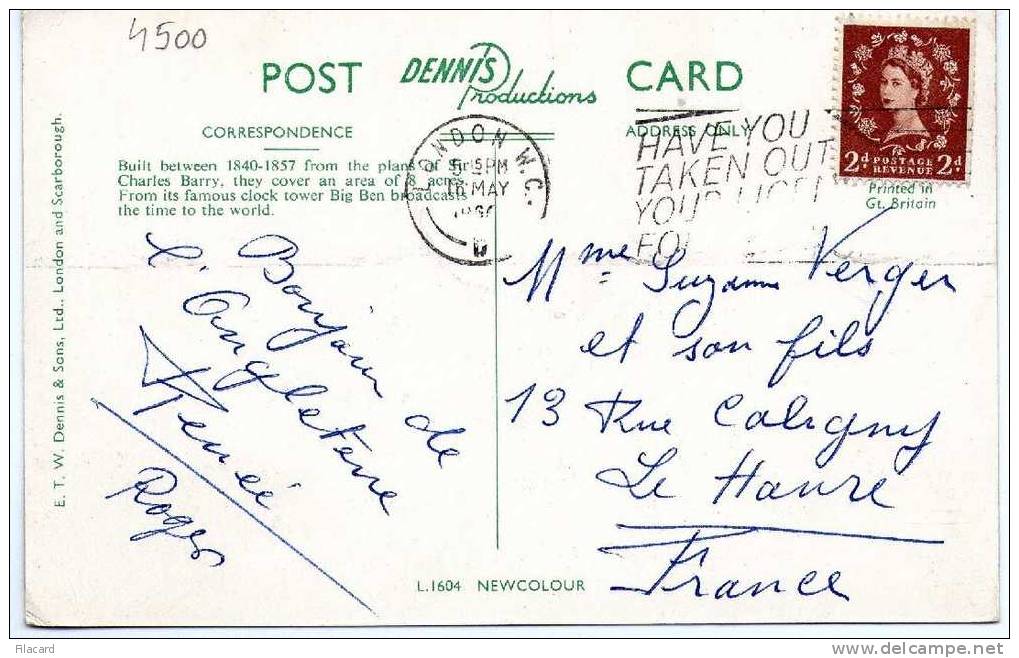 4500
POST DENNIS Productions CARD
CORRESPONDENCE
ADDRESS ONLY
Built between 1840-1857 from the plans of Sir
Charles Barry, they cover an area of 8 acres.
From its famous clock tower Big Ben broadcasts
the time to the world.
E. T. W. Dennis & Sons, Ltd., London and Scarborough.
LONDON W.C.
5 15PM
16 MAY
HAVE YOU
TAKEN OUT
2d POSTAGE REVENUE 2d
Printed in
Gt. Britain
Bonjour de
l'Angleterre
Roger
Mme Suzanne Verger
et son fils
13 Rue Coligny
Le Havre
France
L.1604 NEWCOLOUR
Filacard
www.delcampe.net